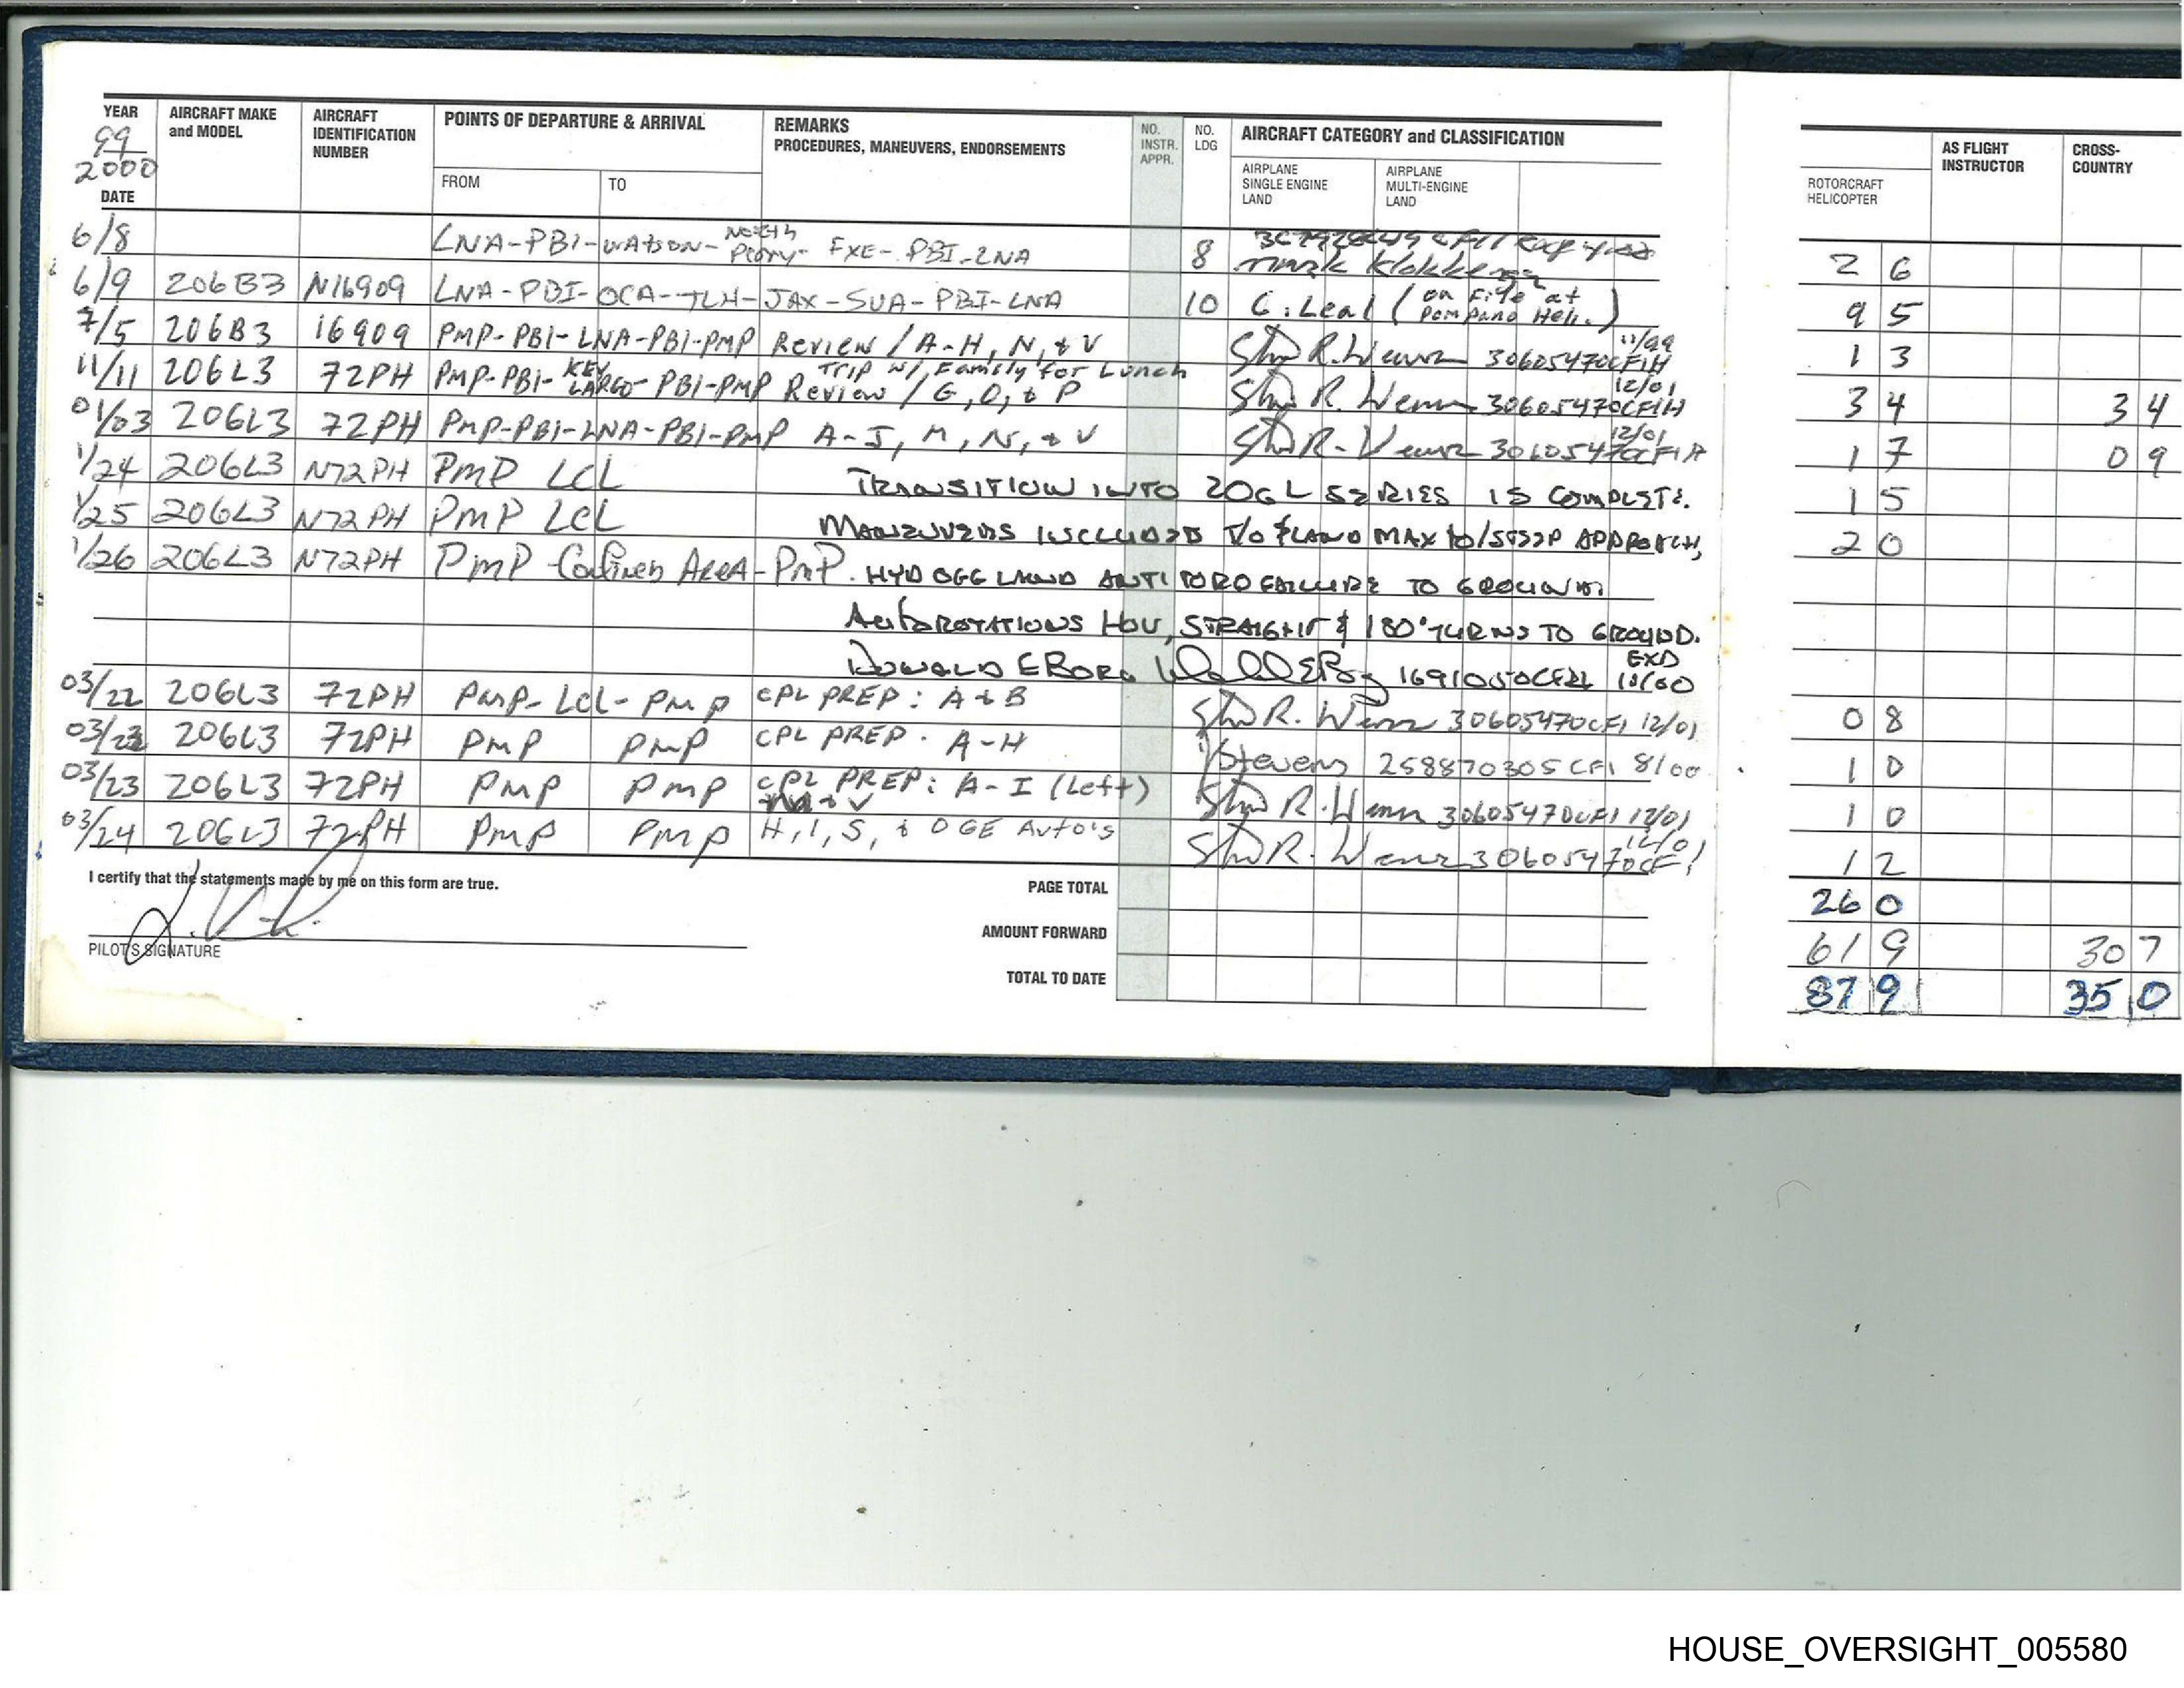 YEAR AIRCRAFT MAKE AIRCRAFT POINTS OF DEPARTURE & ARRIVAL REMARKS NO. NO. AIRCRAFT CATEGORY and CLASSIFICATION AS FLIGHT CROSS-
99 and MODEL IDENTIFICATION PROCEDURES, MANEUVERS, ENDORSEMENTS INSTR. LDG INSTRUCTOR COUNTRY
2000 NUMBER APPR. AIRPLANE AIRPLANE
FROM TO SINGLE ENGINE MULTI-ENGINE ROTORCRAFT
DATE LAND LAND HELICOPTER
6/8 LNA-PBI-WATSON-North Perry- FXE-PBI-LNA 8 Mark 2 6
6/9 206B3 N16909 LNA-PBI-OCA-TLH-JAX-SUA-PBI-LNA 10 G. Leal (on File at Pompano Heli.) 9 5
7/5 206B3 16909 PMP-PBI-LNA-PBI-PMP Review / A-H, N, & V R. 30605470CFIH 11/99 1 3
11/11 206L3 72PH PMP-PBI-KEY LARGO-PBI-PMP Trip w/ Family for Lunch Review / G, O, & P R. 30605470CFIH 12/01 3 4 3 4
01/03 206L3 72PH PMP-PBI-LNA-PBI-PMP A-J, M, N, & V R. 30605470CFIH 12/01 1 7 0 9
1/24 206L3 N72PH PMP LCL TRANSITION INTO 206L SERIES IS COMPLETE. 1 5
1/25 206L3 N72PH PMP LCL MANEUVERS INCLUDED T/O & LAND MAX TO/STEEP APPROACH, 2 0
1/26 206L3 N72PH PMP-Confined Area-PMP. HYD OFF LAND ANTI TORQ FAILURE TO GROUND.
AUTOROTATIONS HOV, STRAIGHT & 180° TURNS TO GROUND.
DONALD E 1691050CFI EXP 11/00
03/22 206L3 72PH PMP-LCL-PMP CPL PREP: A & B R. 30605470CFI 12/01 0 8
03/23 206L3 72PH PMP PMP CPL PREP: A-H Stevens 258870305CFI 8/00 1 0
03/23 206L3 72PH PMP PMP CPL PREP: A-I (Left) & V R. 30605470CFI 12/01 1 0
03/24 206L3 72PH PMP PMP H, I, S, & OGE Auto's R. 30605470CFI 12/01 1 2
I certify that the statements made by me on this form are true. PAGE TOTAL 26 0
AMOUNT FORWARD 61 9 30 7
PILOT'S SIGNATURE TOTAL TO DATE 87 9 35 0
HOUSE_OVERSIGHT_005580